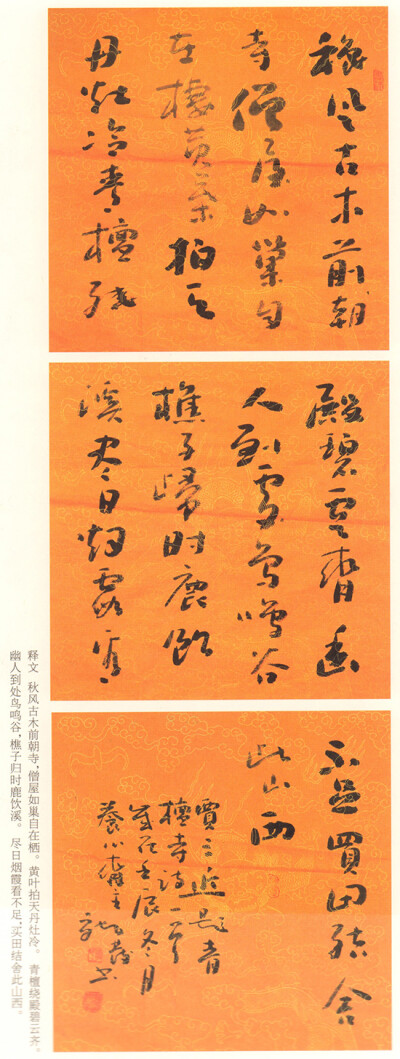 穐风古木前朝
寺僧屋如巢自
在棲黄葉拍天
丹灶冷青檀繞
殿碧雲齊幽
人到處鸟鸣谷
樵子歸时鹿饮
溪尽日烟霞看
不足買田结舍
此山西
賈三近題青
檀寺詩一首
歲在壬辰冬月
養心齋主
书
释文 秋风古木前朝寺,僧屋如巢自在栖。黄叶拍天丹灶冷。 青檀绕殿碧云齐。
幽人到处鸟鸣谷,樵子归时鹿饮溪。 尽日烟霞看不足,买田结舍此山西。